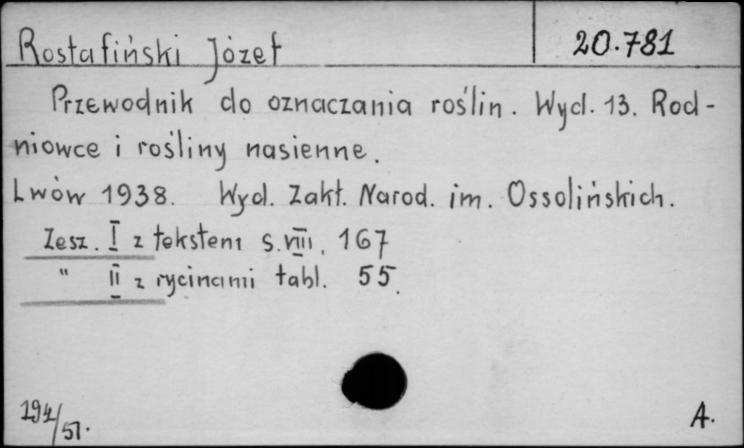 Rostafiński Józef 20.781
Przewodnik do oznaczania roślin. Wyd. 13. Rod-
niowce i rośliny nasienne.
Lwów 1938. Wyd. Zakł. Narod. im. Ossolińskich.
Zesz. I z tekstem s. VIII, 167
" II z rycinami tabl. 55.
194/51.
A.